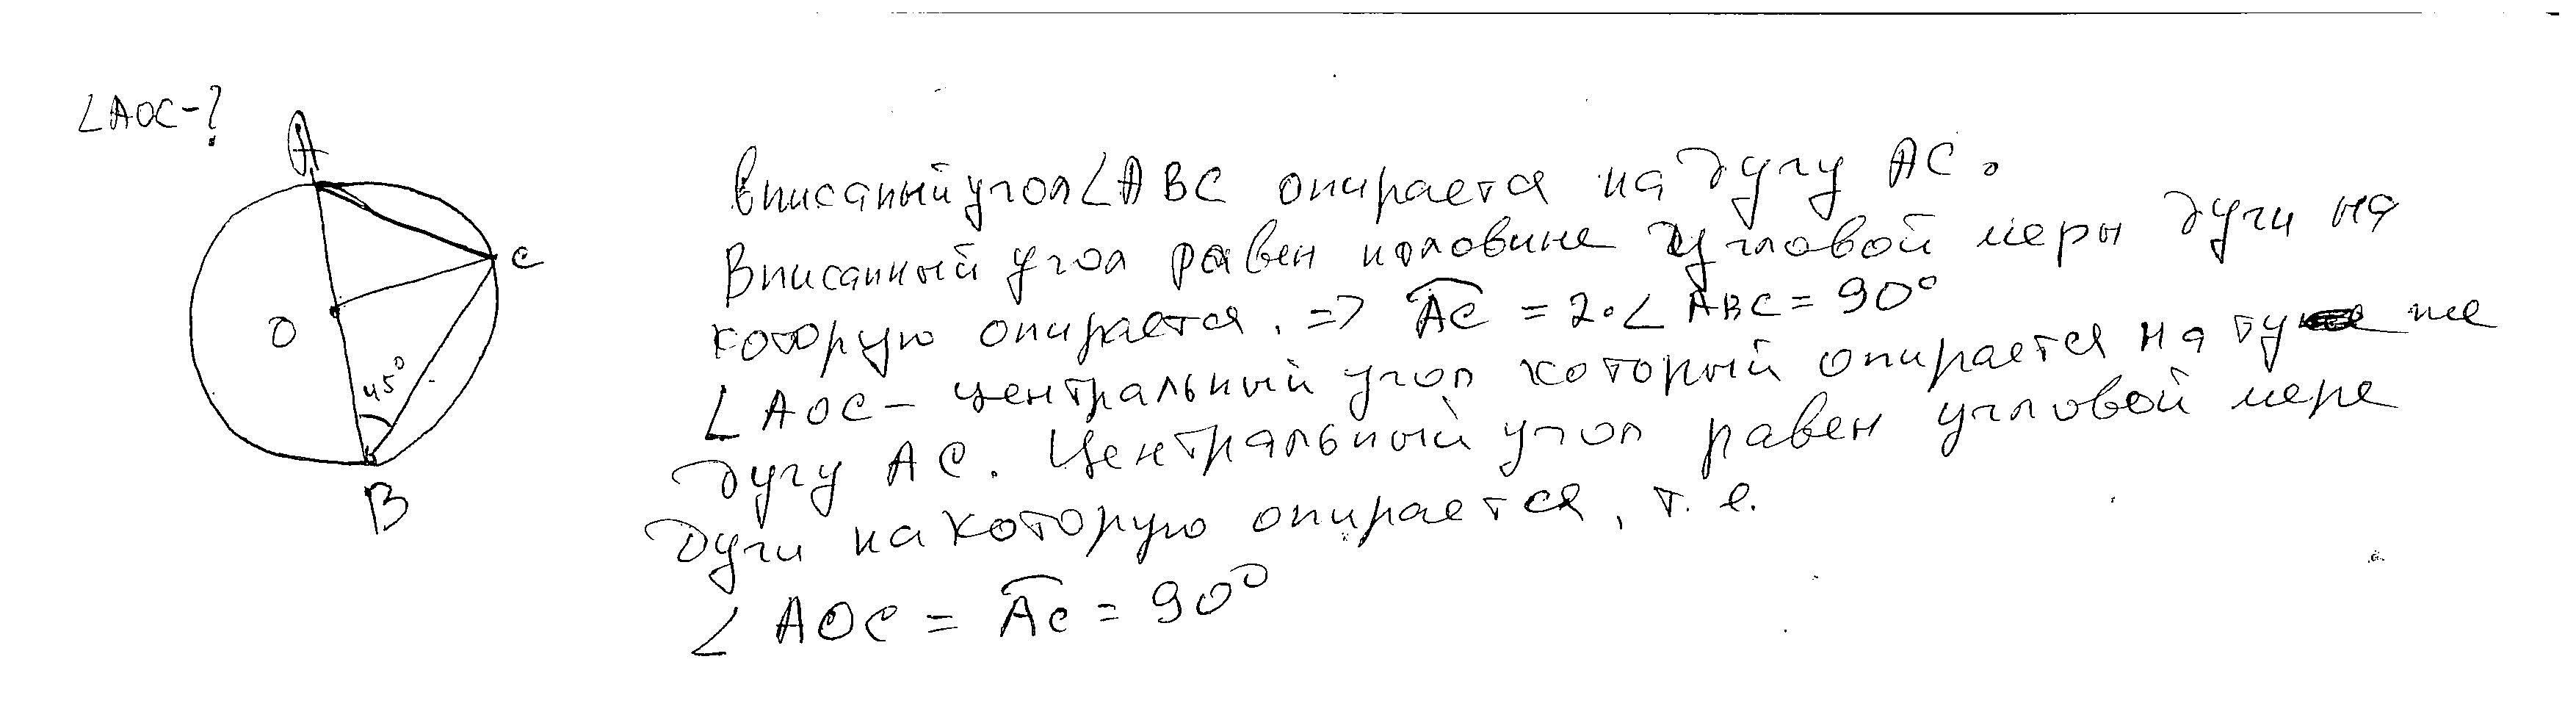 ∠AOC-?
A
C
O
45°
B
Вписаный угол ∠ABC опирается на дугу AC.
Вписанный угол равен половине угловой меры дуги на
которую опирается. => AC = 2·∠ABC = 90°
∠AOC - центральный угол который опирается на ту же
дугу AC. Центральный угол равен угловой мере
дуги на которую опирается, т.е.
∠AOC = AC = 90°